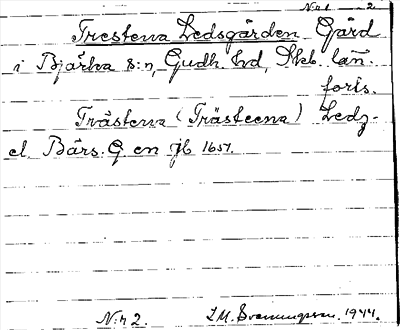 Nr 1 - 2
Trestena Ledsgården Gård
i Bjärka s:n, Gudh. hd, Skb. län.
foris.
Trästena (Trästeena) Ledz-
el. Bärs. G en jb 1651.
N:r 2. I.M. Svenungsson. 1944.